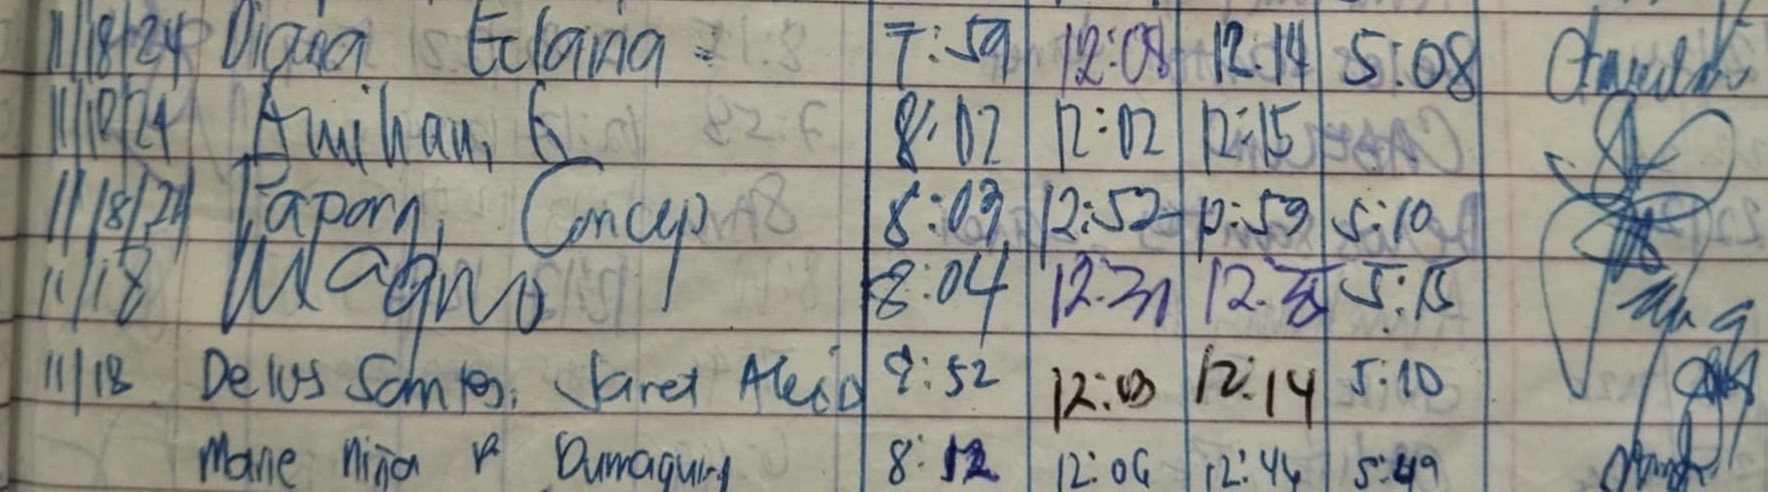 11/18/24 Diana Eclaria 7:59 12:08 12:14 5:08
11/18/24 Amihan, G 8:02 12:02 12:15
11/18/24 Papong, Concep 8:03 12:52 12:59 5:10
11/18 Magno 8:04 12:31 12:35 5:15
11/18 Delos Santos, Janet Alecio :52 12:03 12:14 5:10
Marie Niña P Dumaguing 8:12 12:06 12:44 5:49